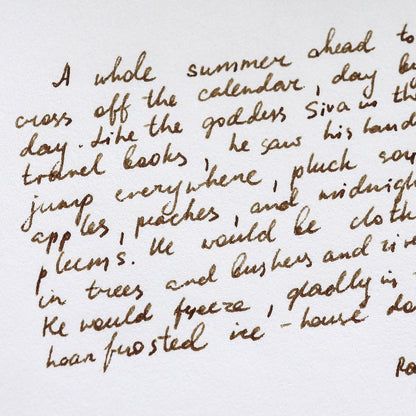 A whole summer ahead to
cross off the calendar, day by
day. Like the goddess Siva in the
travel books, he saw his hands
jump everywhere, pluck sour
apples, peaches, and midnight
plums. He would be cloth
in trees and bushes and ri
He would freeze, gladly in
hoar frosted ice-house do